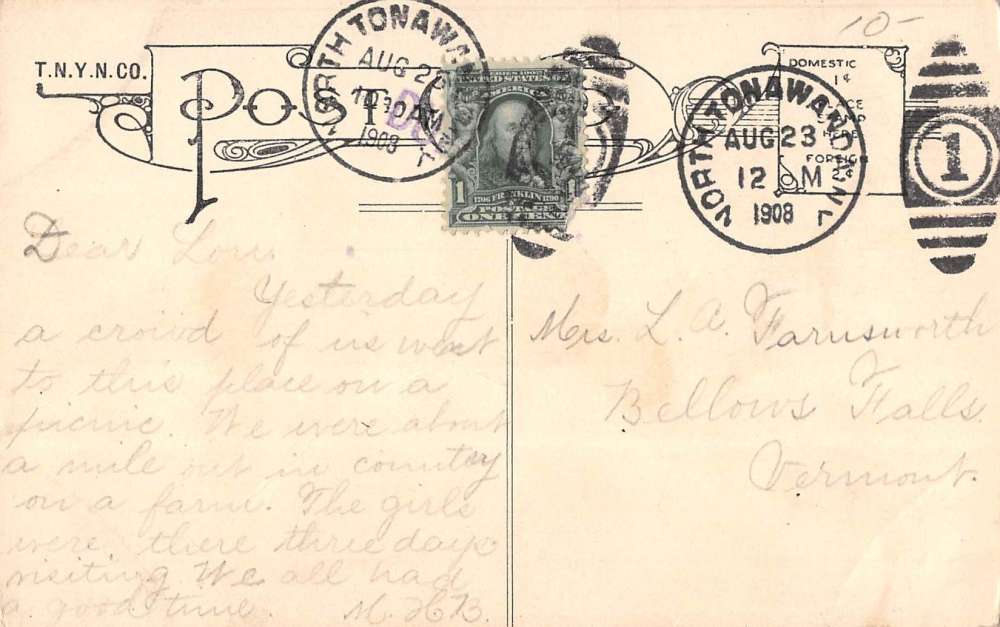 10-
T.N.Y.N.CO.
POST
NORTH TONAWANDA
AUG 22
10 30 AM
1908
SERIES 1902
UNITED STATES OF AMERICA
1 1
1706 FRANKLIN 1790
POSTAGE
ONE CENT
NORTH TONAWANDA N.Y.
AUG 23
12 M
1908
1
DOMESTIC
1¢
PLACE
STAMP
HERE
FOREIGN
2¢
Dear Lou,
Yesterday
a crowd of us went
to this place on a
picnic. We were about
a mile out in country
on a farm. The girls
were there three days
visiting We all had
a good time. M. H. B.
Mrs. L. A. Farnsworth
Bellows Falls.
Vermont.